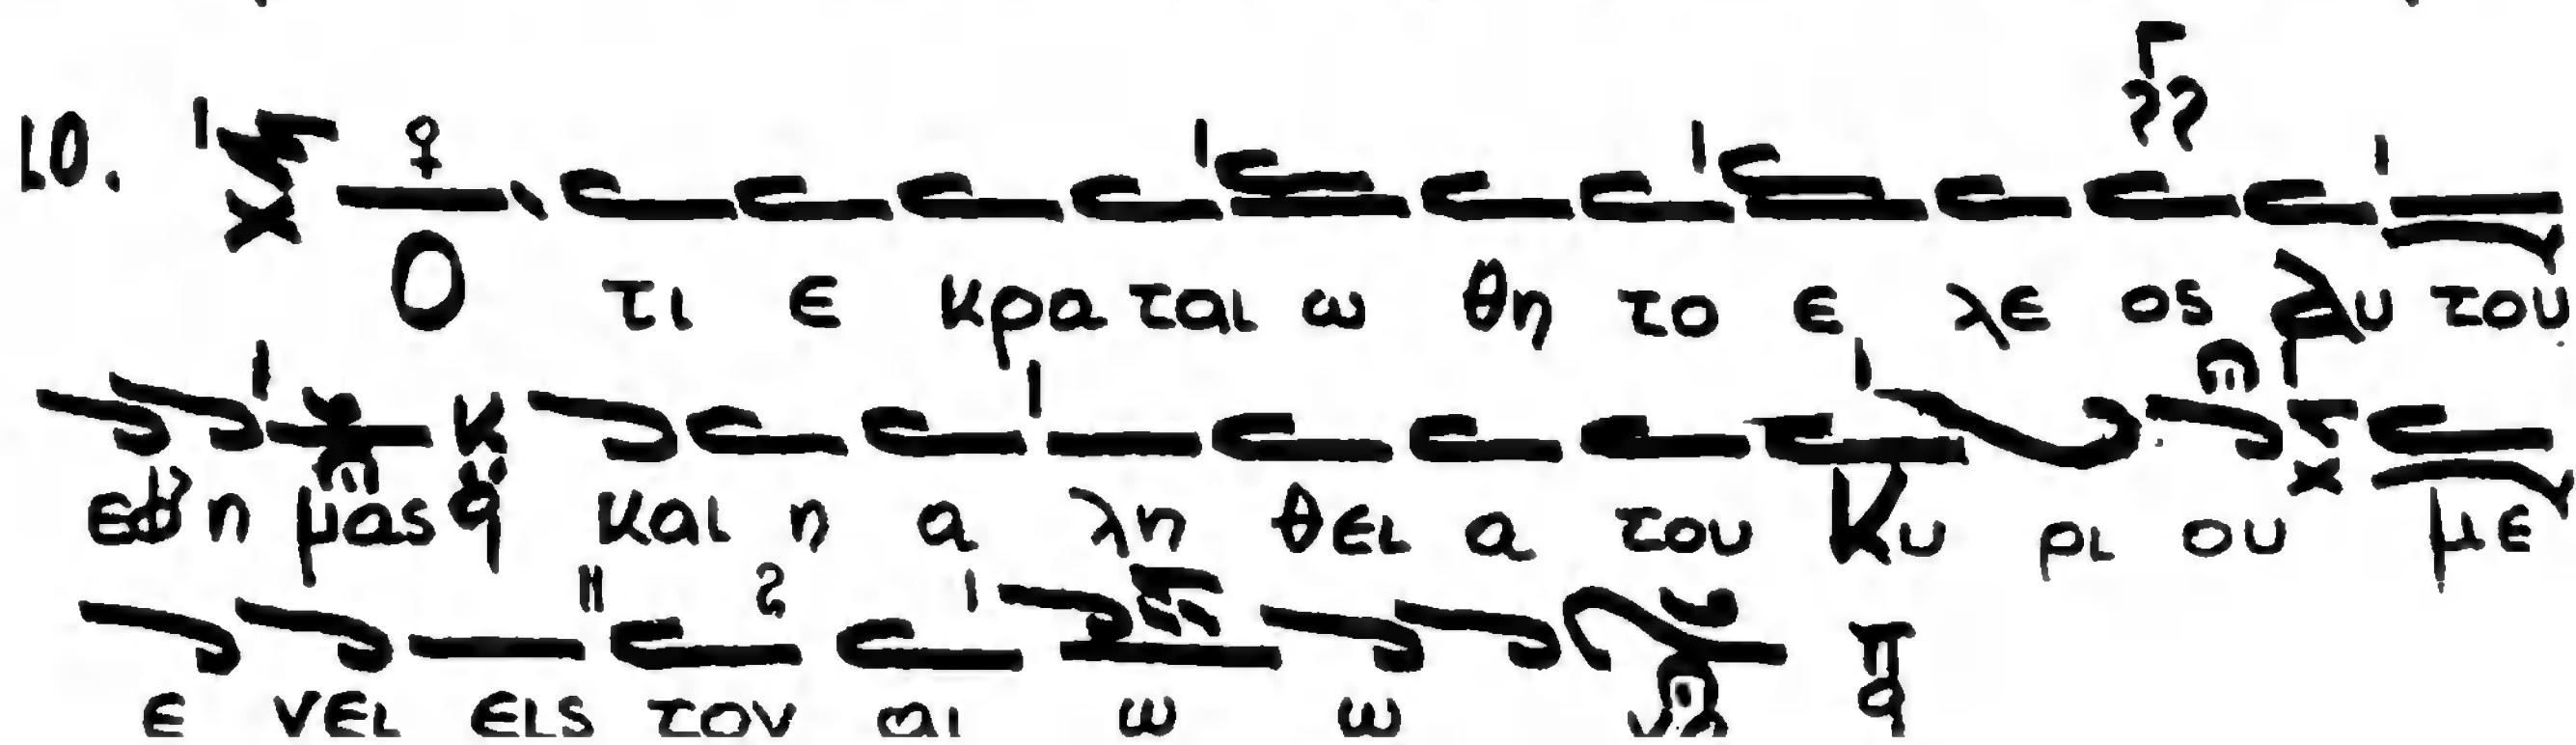 10. Ο τι ε κρα ται ω θη το ε λε ος αυ του
εφ η μας και η α λη θει α του Κυ ρι ου με
ε νει εις τον αι ω ω